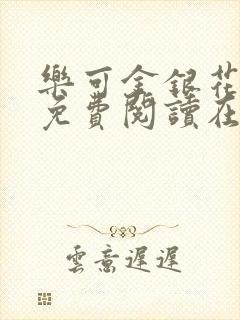 樂可金銀花
免費閱讀在
雲意遲遲